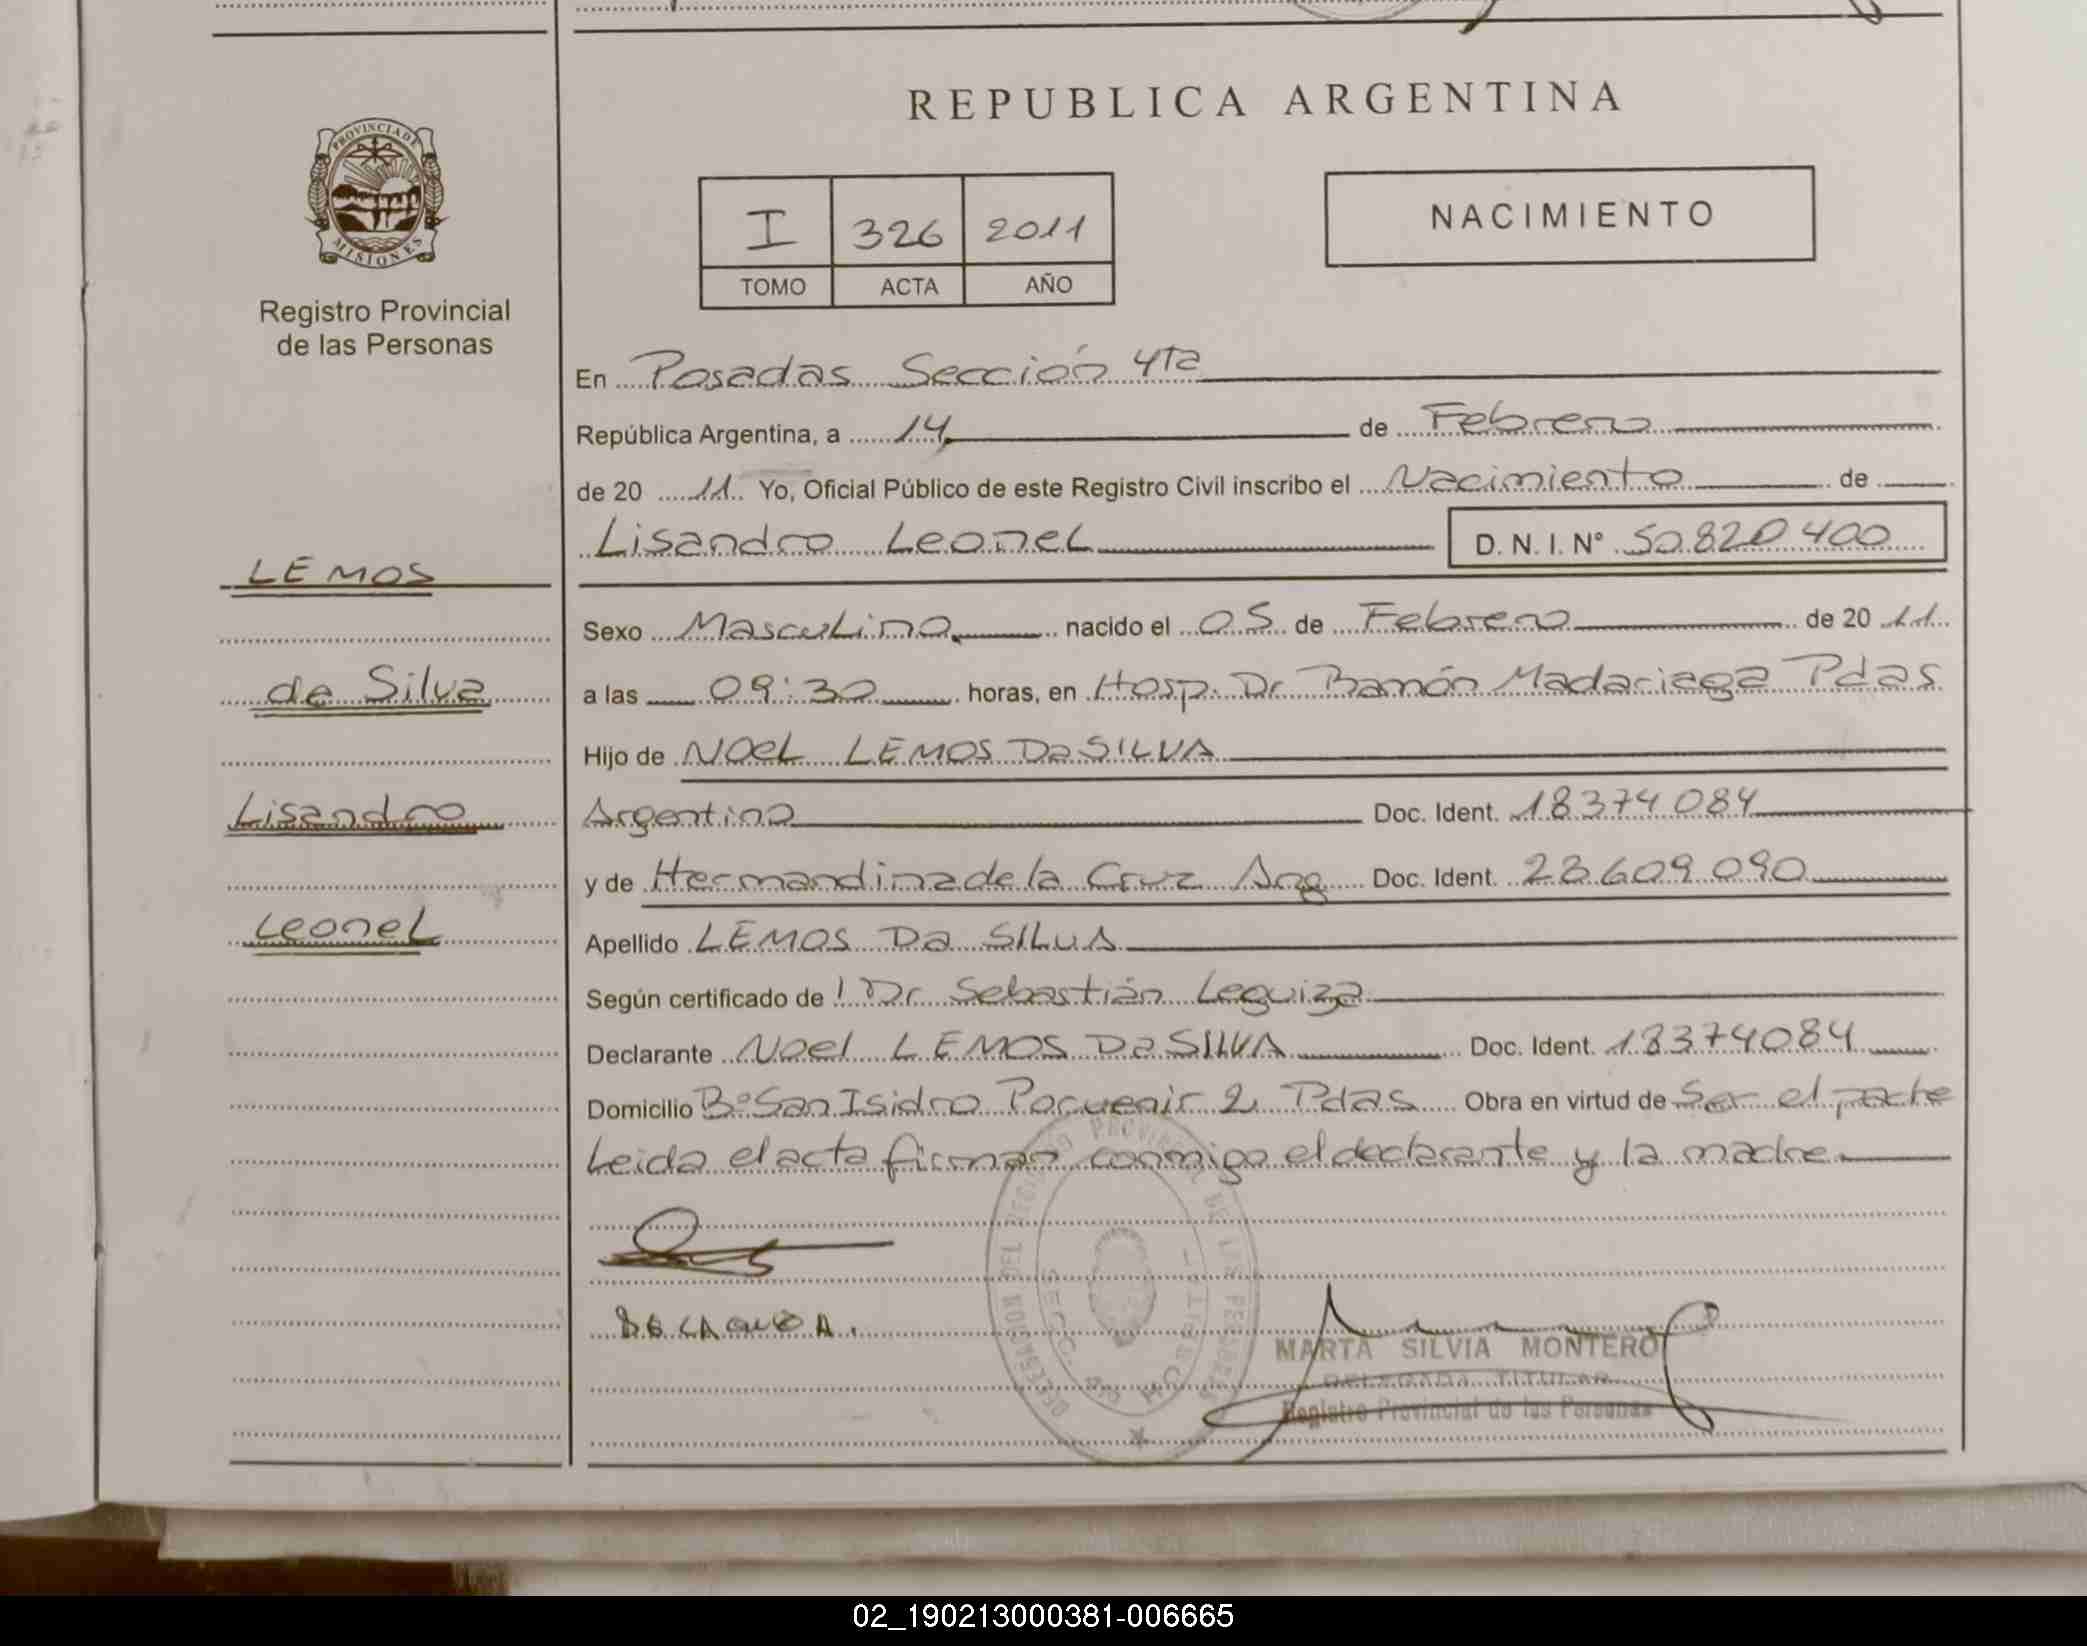 REPUBLICA ARGENTINA
PROVINCIA DE MISIONES
Registro Provincial
de las Personas
I 326 2011
TOMO ACTA AÑO
NACIMIENTO
En Posadas Sección 4ta
República Argentina, a 14 de Febrero
de 20 11 Yo, Oficial Público de este Registro Civil inscribo el Nacimiento de
Lisandro Leonel D. N. I. N° 50.820.400
LEMOS
de Silva
Lisandro
Leonel
Sexo Masculino nacido el 05 de Febrero de 20 11
a las 09:30 horas, en Hosp. Dr Ramón Madariaga Pdas
Hijo de NOEL LEMOS Da SILVA
Argentino Doc. Ident. 18374084
y de Hermandina de la Cruz Arg Doc. Ident. 23.609.090
Apellido LEMOS Da SILVA
Según certificado de Dr Sebastián Leguiza
Declarante Noel LEMOS Da SILVA Doc. Ident. 18374084
Domicilio B° San Isidro Porvenir 2 Pdas Obra en virtud de Ser el padre
Leida el acta firman conmigo el declarante y la madre
DE LA CRUZ
MARTA SILVIA MONTERO
DELEGADA TITULAR
Registro Provincial de las Personas
02_190213000381-006665